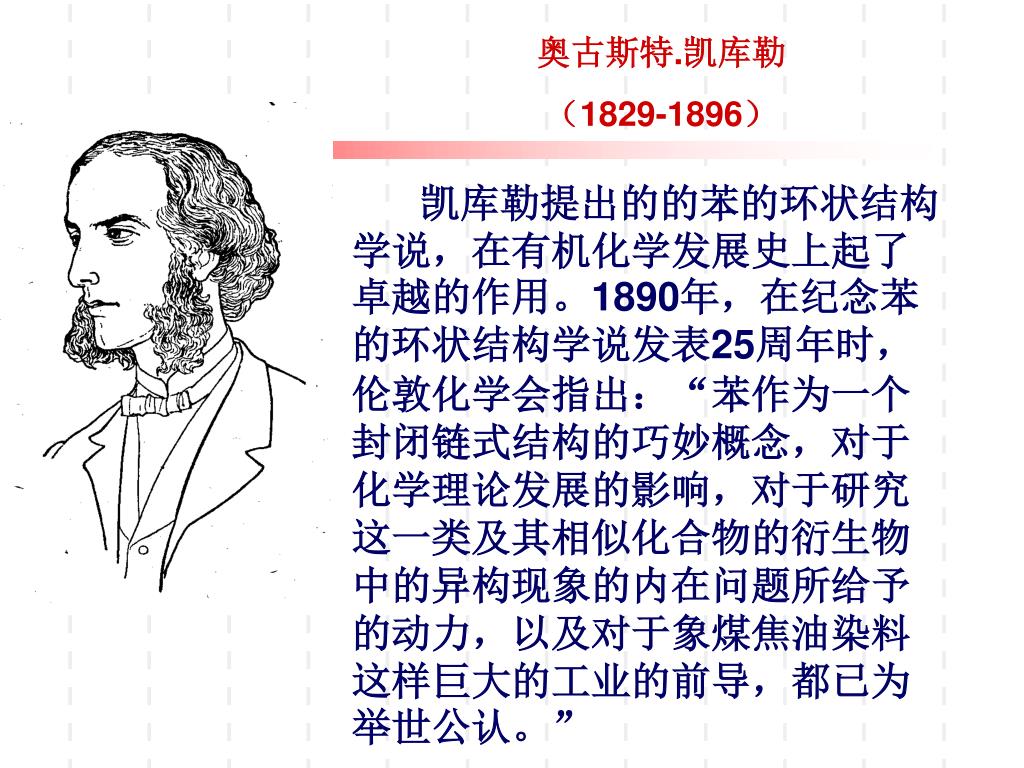 奥古斯特.凯库勒
（1829-1896）
凯库勒提出的的苯的环状结构
学说，在有机化学发展史上起了
卓越的作用。1890年，在纪念苯
的环状结构学说发表25周年时，
伦敦化学会指出：“苯作为一个
封闭链式结构的巧妙概念，对于
化学理论发展的影响，对于研究
这一类及其相似化合物的衍生物
中的异构现象的内在问题所给予
的动力，以及对于象煤焦油染料
这样巨大的工业的前导，都已为
举世公认。”